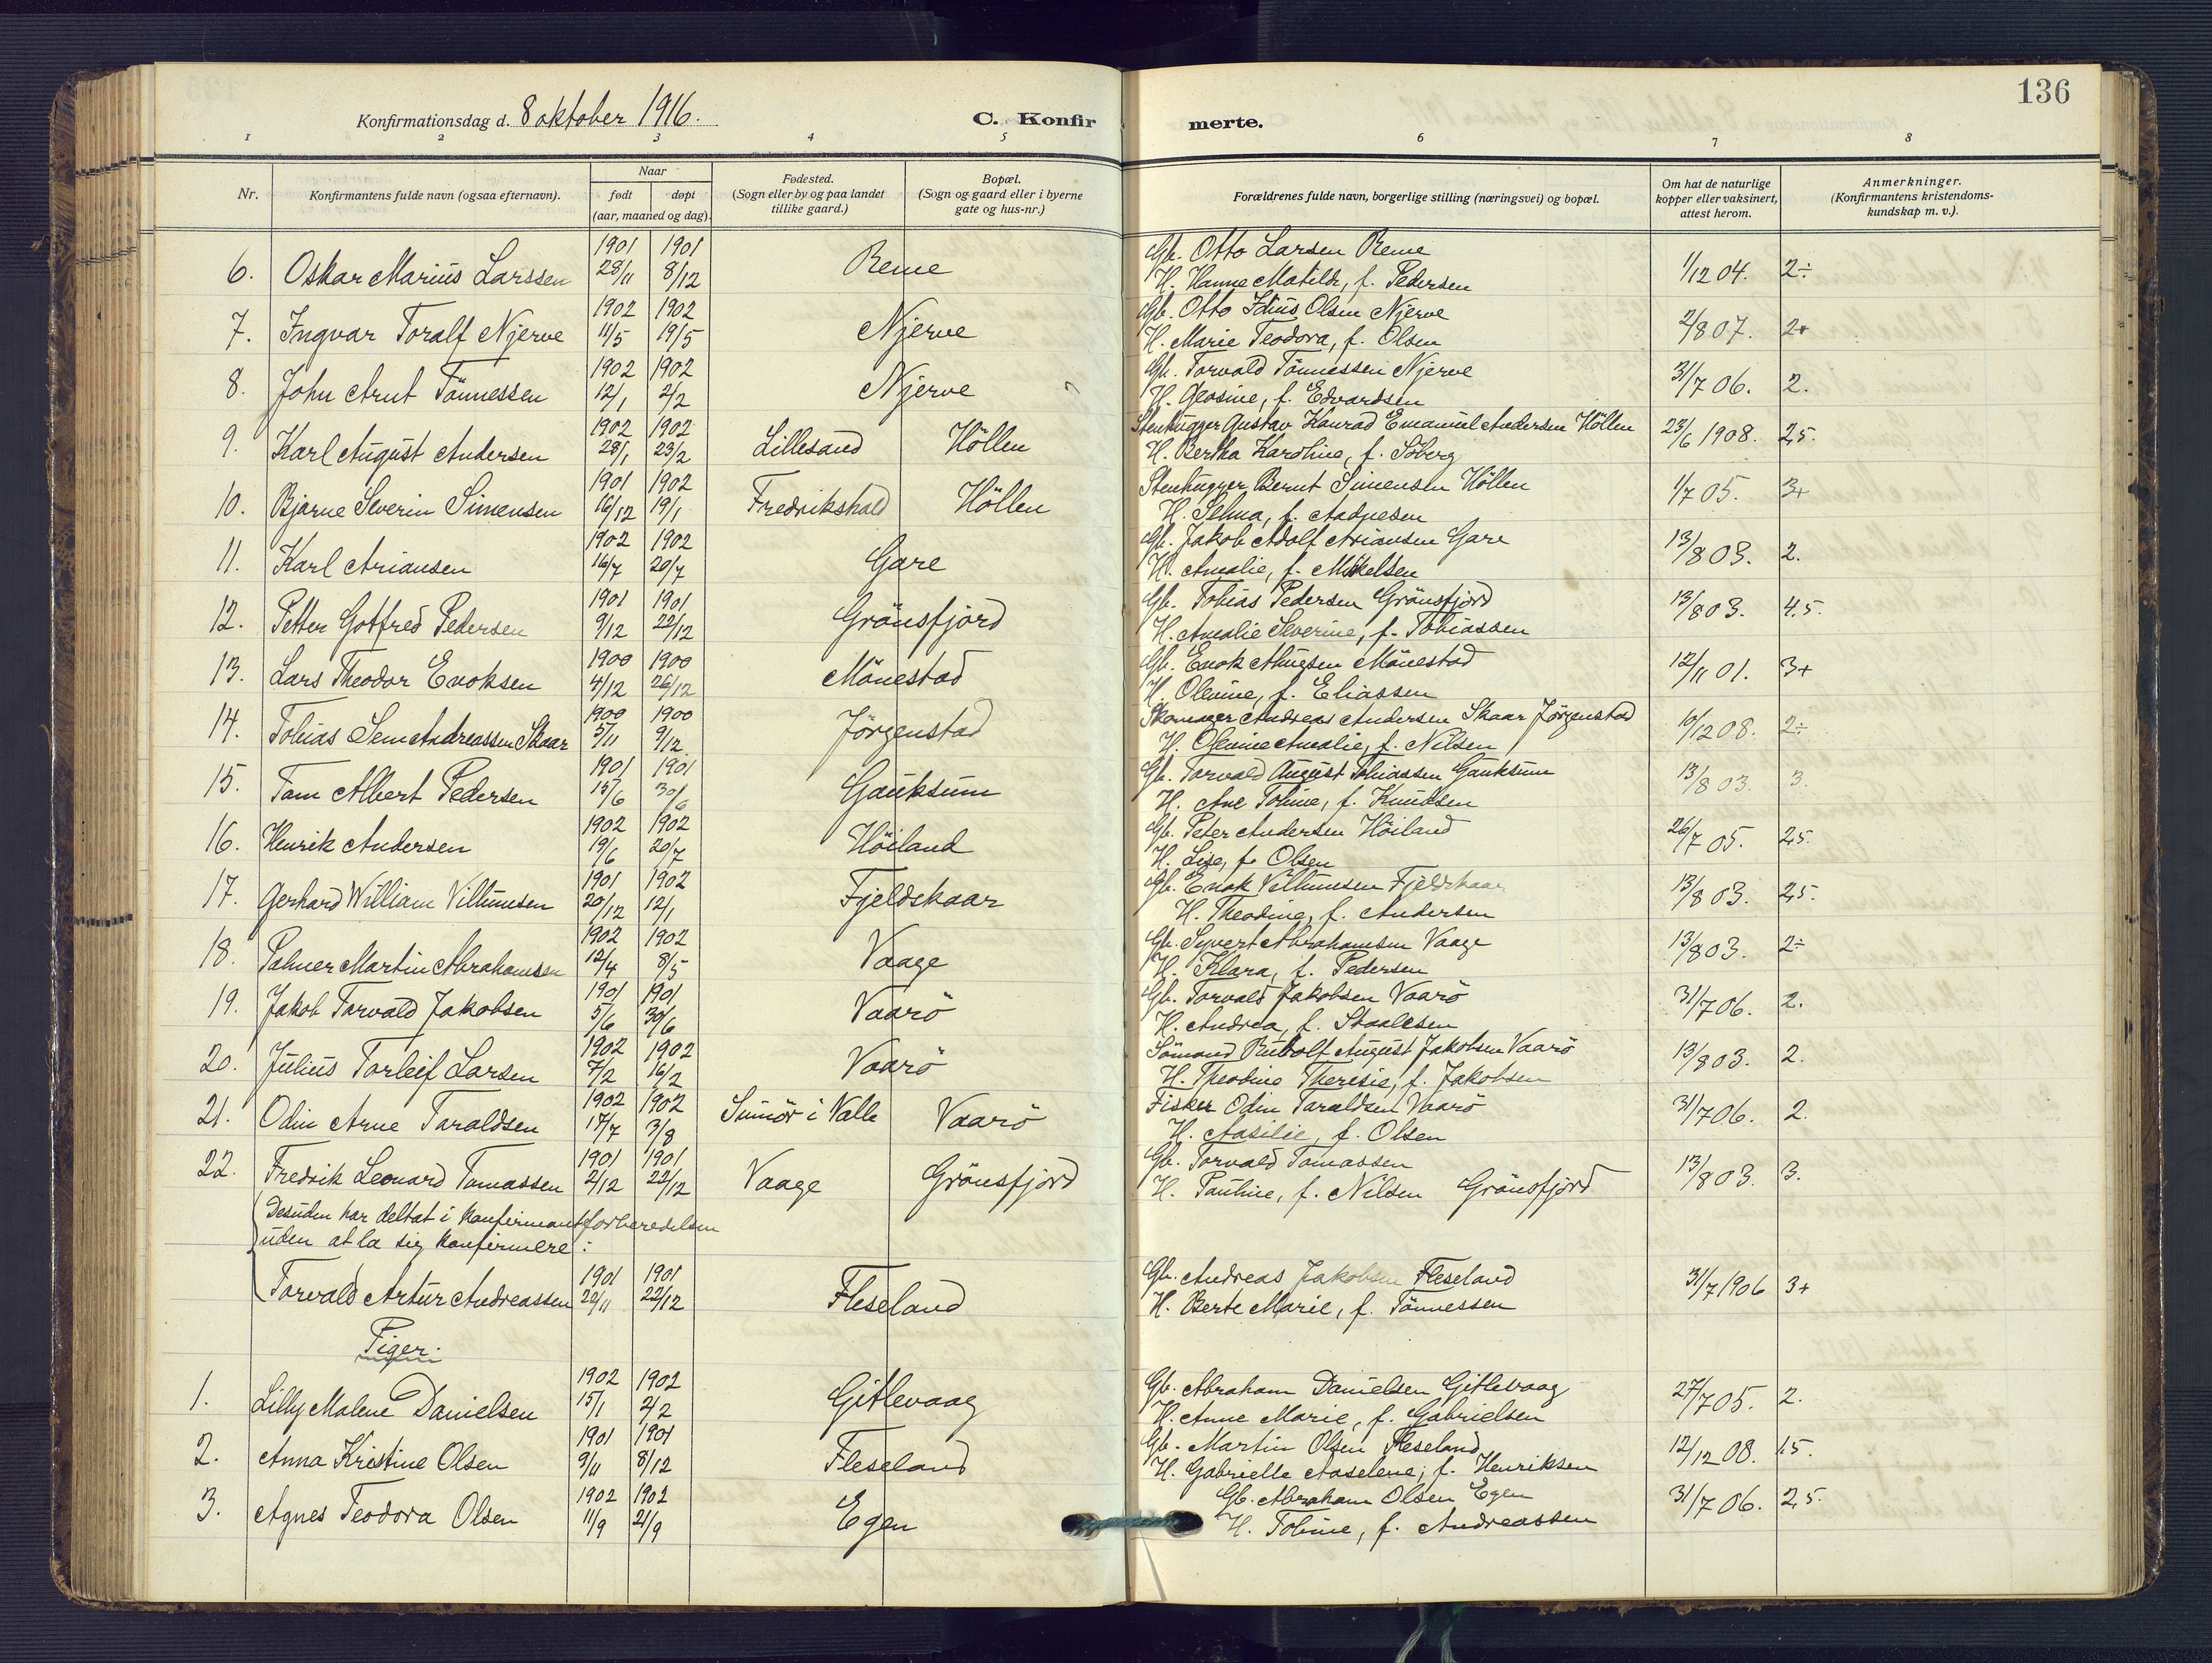 136
Konfirmationsdag d. 8 oktober 1916.
C. Konfirmerte.
1 2 3 4 5 6 7 8
Nr.
Konfirmantens fulde navn (ogsaa efternavn).
Naar
født døpt
(aar, maaned og dag).
Fødested.
(Sogn eller by og paa landet
tillike gaard.)
Bopæl.
(Sogn og gaard eller i byerne
gate og hus-nr.)
Forældrenes fulde navn, borgerlige stilling (næringsvei) og bopæl.
Om hat de naturlige
kopper eller vaksinert,
attest herom.
Anmerkninger.
(Konfirmantens kristendoms-
kundskap m. v.).
1901 1901 Gb. Otto Larsen Reme
6. Oskar Marius Larssen 28/11 8/12 Reme H. Hanne Matilde, f. Pedersen 1/12 04. 2÷
1902 1902 Gb. Otto Olsen Njerve
7. Ingvar Toralf Njerve 11/5 19/5 Njerve H. Marie Teodora, f. Olsen 2/8 07. 2+
1902 1902 Gb. Torvald Tönnessen Njerve
8. John Arnt Tönnessen 12/1 2/2 Njerve H. Geosine, f. Edvardsen 31/7 06. 2.
1902 1902 Stenhugger Gustav Konrad Emanuel Andersen Höllen
9. Karl August Andersen 28/1 23/2 Lillesand Höllen H. Bertha Karoline, f. Söberg 23/6 1908. 2,5.
1901 1902 Stenhugger Bernt Simensen Höllen
10. Bjarne Severin Simensen 16/12 19/1 Fredrikshald Höllen H. Selma, f. 1/7 05. 3+
1902 1902 Gb. Jakob Adolf Ariansen Gare
11. Karl Ariansen 16/7 20/7 Gare H. Amalie, f. Mikkelsen 13/8 03. 2.
1901 1901 Gb. Tobias Pedersen Grönsfjord
12. Petter Gotfred Pedersen 9/12 22/12 Grönsfjord H. Amalie Severine, f. Tobiassen 13/8 03. 4.5.
1900 1900 Gb. Enok Mönestad
13. Lars Theodor Enoksen 4/12 26/12 Mönestad H. Olenine, f. Eliassen 12/11 01. 3+
1900 1900 Skomager Andreas Andersen Skaar Jörgenstad
14. Tobias Sem Andreassen Skaar 5/11 9/12. Jörgenstad H. Olenine Amalie, f. Nilsen 10/12 08. 2÷
1901 1901 Gb. Torvald August Tobiassen Gauksum
15. Tom Albert Pedersen 15/6 30/6 Gauksum H. Ane Tobine, f. Knudsen 13/8 03. 3.
1902 1902 Gb. Peter Andersen Höiland
16. Henrik Andersen 19/6 20/7 Höiland H. Lise, f. Olsen 26/7 05. 2,5.
1901 1902 Gb. Enok Villumsen Fjeldskaar
17. Gerhard William Villumsen 20/12 12/1 Fjeldskaar H. Theodine, f. Andersen 13/8 03. 2,5.
1902 1902 Gb. Syvert Abrahamsen Vaage
18. Palmer Martin Abrahamsen 12/4 8/5 Vaage H. Klara, f. Pedersen 13/8 03. 2÷
1901 1901 Gb. Torvald Jakobsen Vaarö
19. Jakob Torvald Jakobsen 5/6 30/6 Vaarö H. Andrea, f. Staalesen 31/7 06. 2.
1902 1902 Sömand Rudolf August Jakobsen Vaarö
20. Julius Torleif Larsen 7/2 16/2 Vaarö H. Theodine Theresie, f. Jakobsen 13/8 03. 2.
1902 1902 Fisker Odin Taraldsen Vaarö
21. Odin Arne Taraldsen 17/7 3/8 i Valle Vaarö H. Aasilie, f. Olsen 31/7 06. 2.
1901 1901 Gb. Torvald Tomassen
22. Fredrik Leonard Tomassen 2/12 22/12 Vaage Grönsfjord H. Pauline, f. Nilsen Grönsfjord 13/8 03. 3.
Desuden har deltat i konfirmantforberedelsen
uden at la sig konfirmere:
1901 1901 Gb. Andreas Jakobsen Fleseland
Torvald Artur Andreassen 20/11 22/12 Fleseland H. Berte Marie, f. Tönnessen 31/7 1906 3+
Piger.
1902 1902 Gb. Abraham Danielsen Gitlevaag
1. Lilly Malene Danielsen 15/1 2/2 Gitlevaag H. Anne Marie, f. Gabrielsen 27/7 05. 2.
1901 1901 Gb. Martin Olsen Fleseland
2. Anna Kristine Olsen 9/11 8/12 Fleseland H. Gabrielle Aaselene, f. Henriksen 12/12 08. 1.5.
1902 1902 Gb. Abraham Olsen Egen
3. Agnes Teodora Olsen 11/9 21/9 Egen H. Tobine, f. Andreassen 31/7 06. 2,5.